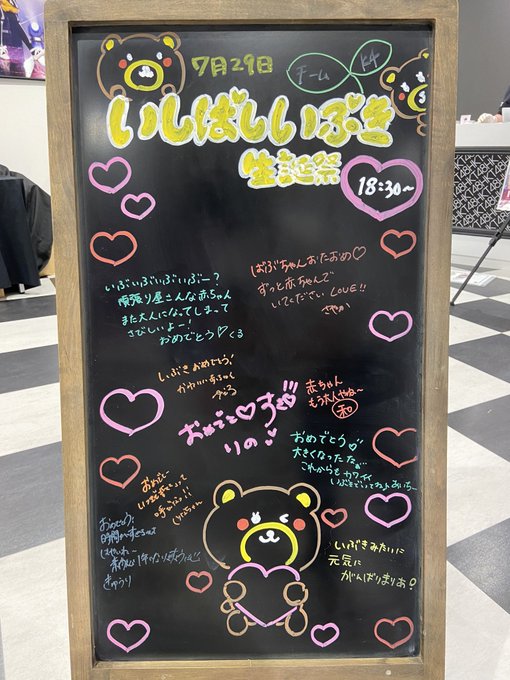 7月29日
チームK4
いしばしいぶき
生誕祭
18:30〜
いぶいぶいぶいぶー？
頑張り屋さんな赤ちゃん
また大人になってしまって
さびしいよー！
おめでとう♡くる
ばぶちゃんおたおめ♡
ずっと赤ちゃんで
いてください LOVE!!
さやか
いぶきおめでとう！
かわいい赤ちゃん
おめでと♡すき♡
りの
赤ちゃん
もう大人やね〜
和
おめでとう♡
大きくなったなぁ
これからもカワイイ
おめでとー
呼ぶ
おめでとう！
時間
はやいね〜
きゅうり
いぶきみたいに
元気に
がんばりまりあ！